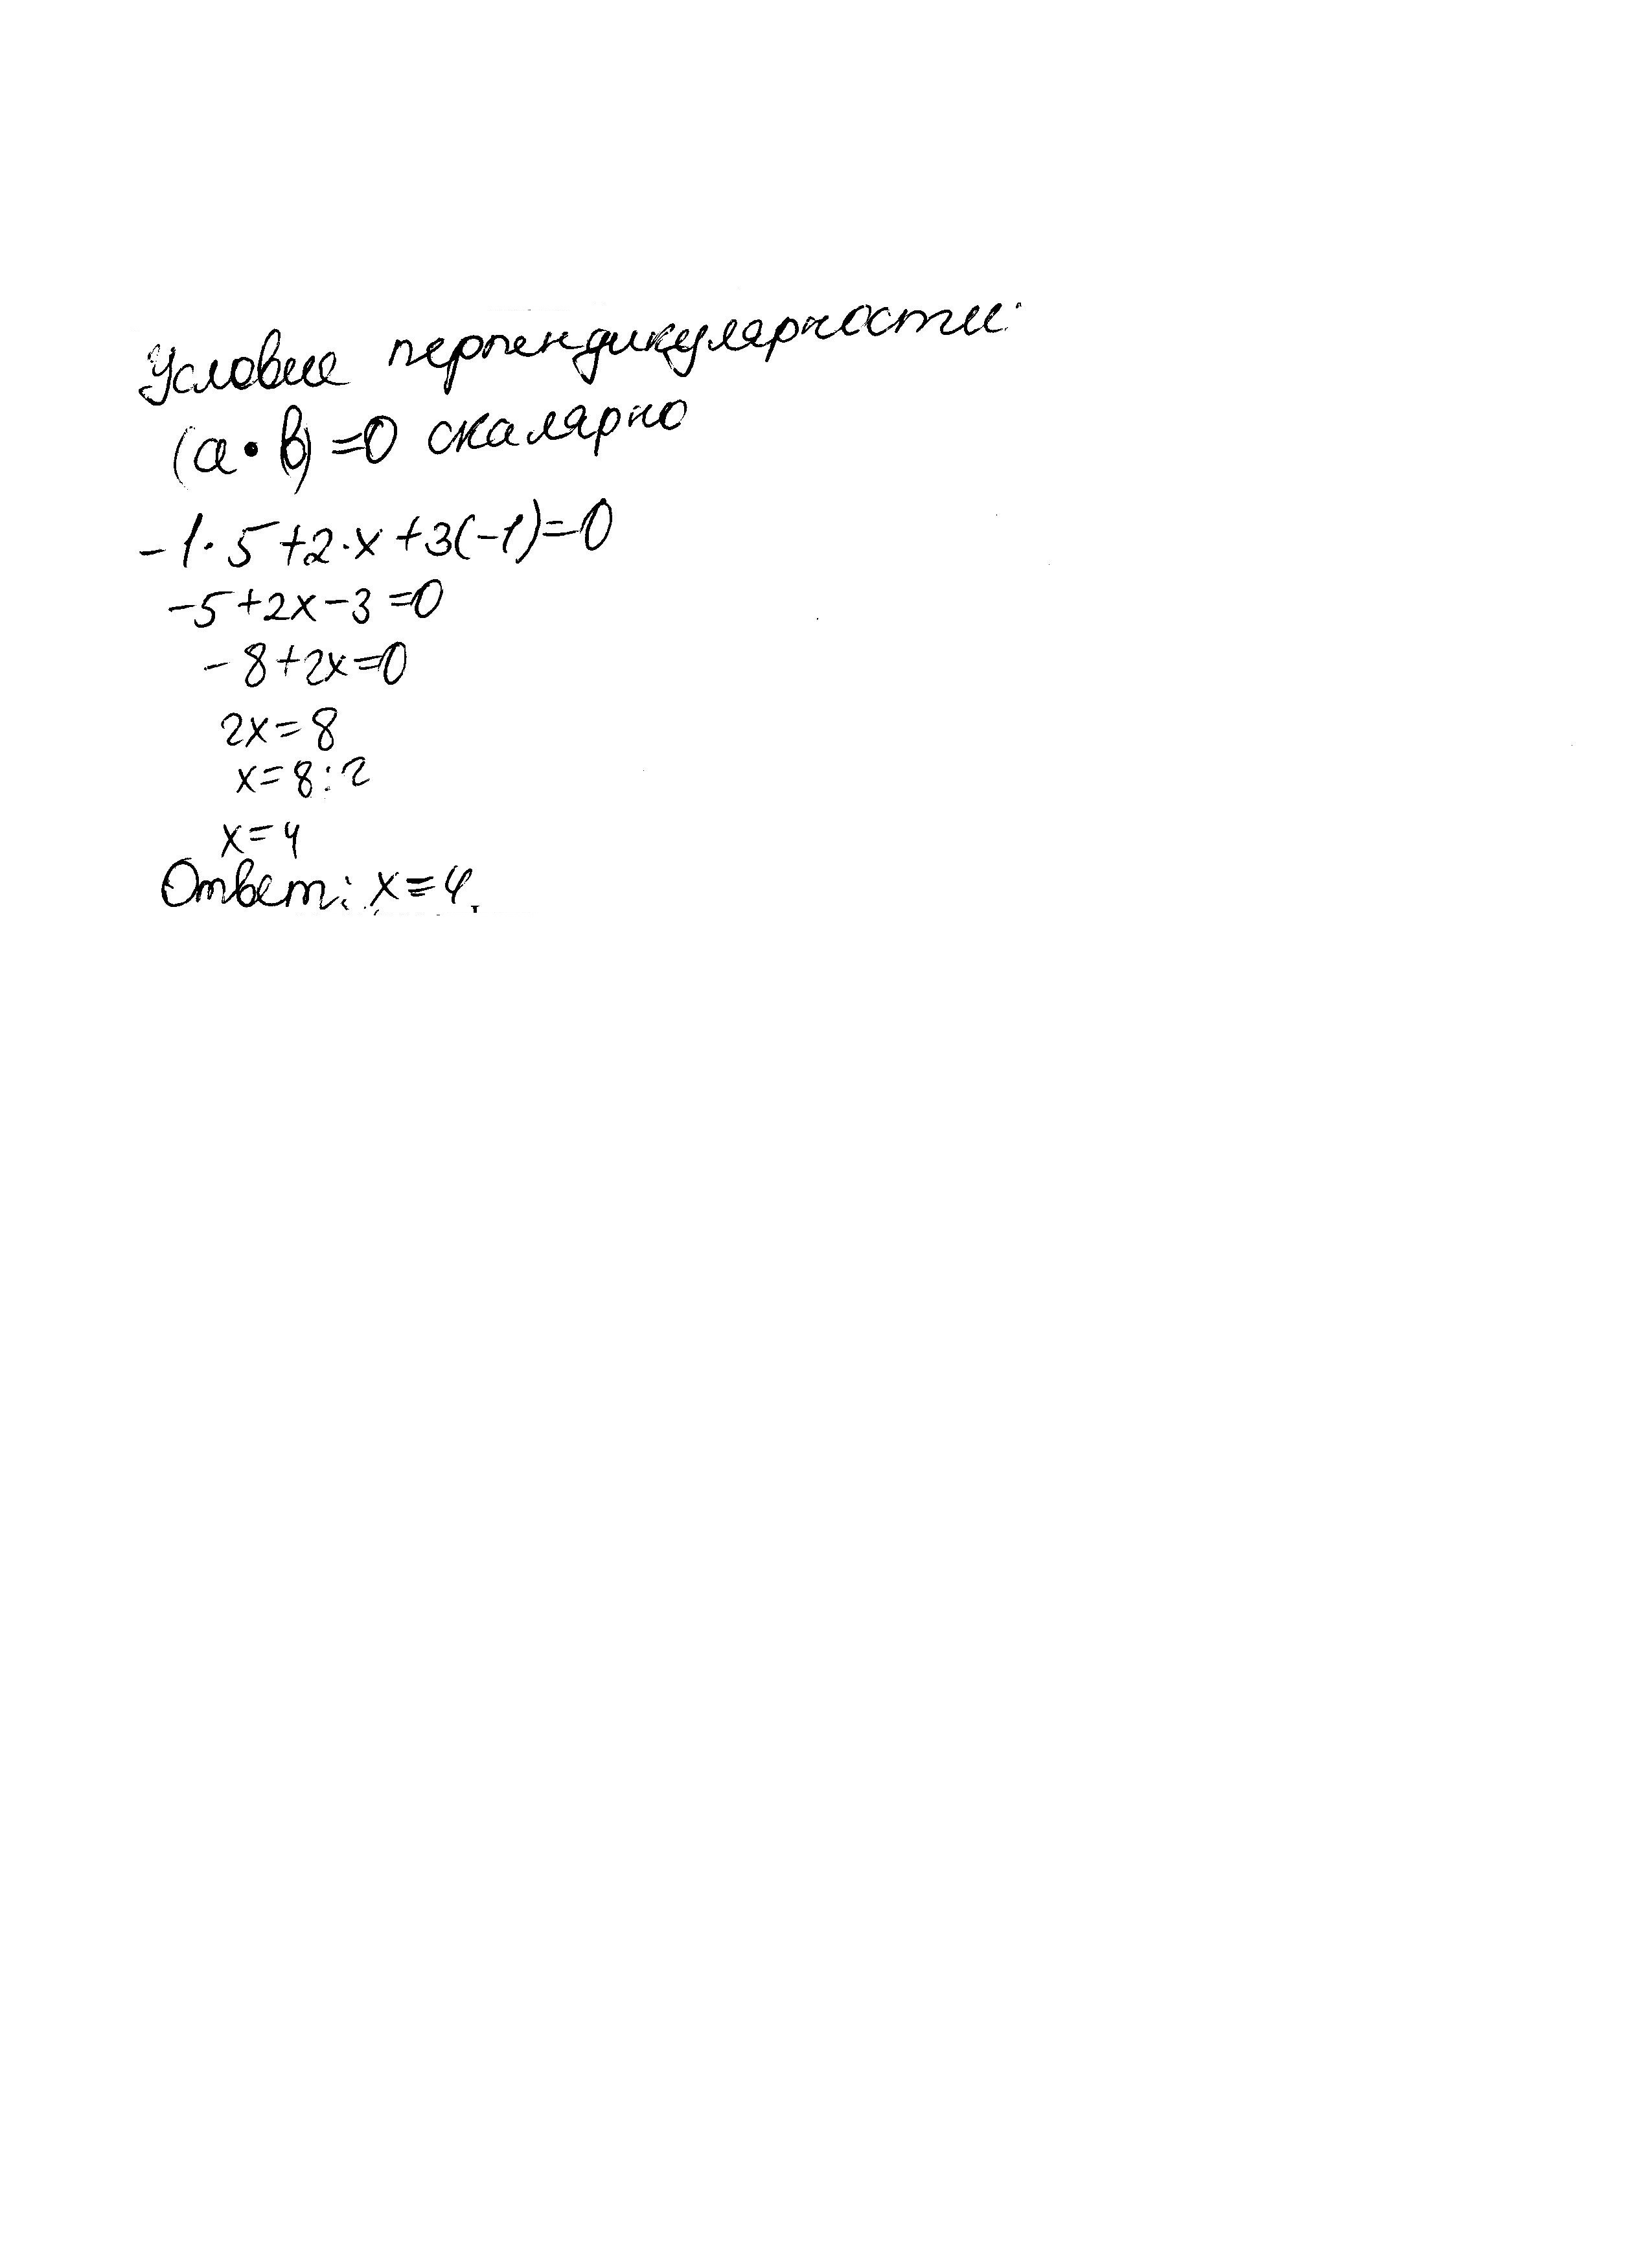 Условие перпендикулярности:
(a•b)=0 скалярно
-1·5+2·x+3(-1)=0
-5+2x-3=0
-8+2x=0
2x=8
x=8:2
x=4
Ответ: x=4.